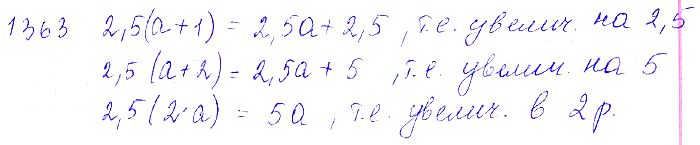 1363 2,5(a+1) = 2,5a + 2,5, т.е. увелич. на 2,5
2,5 (a+2) = 2,5a + 5, т.е. увелич. на 5
2,5 (2·a) = 5a, т.е. увелич. в 2 р.